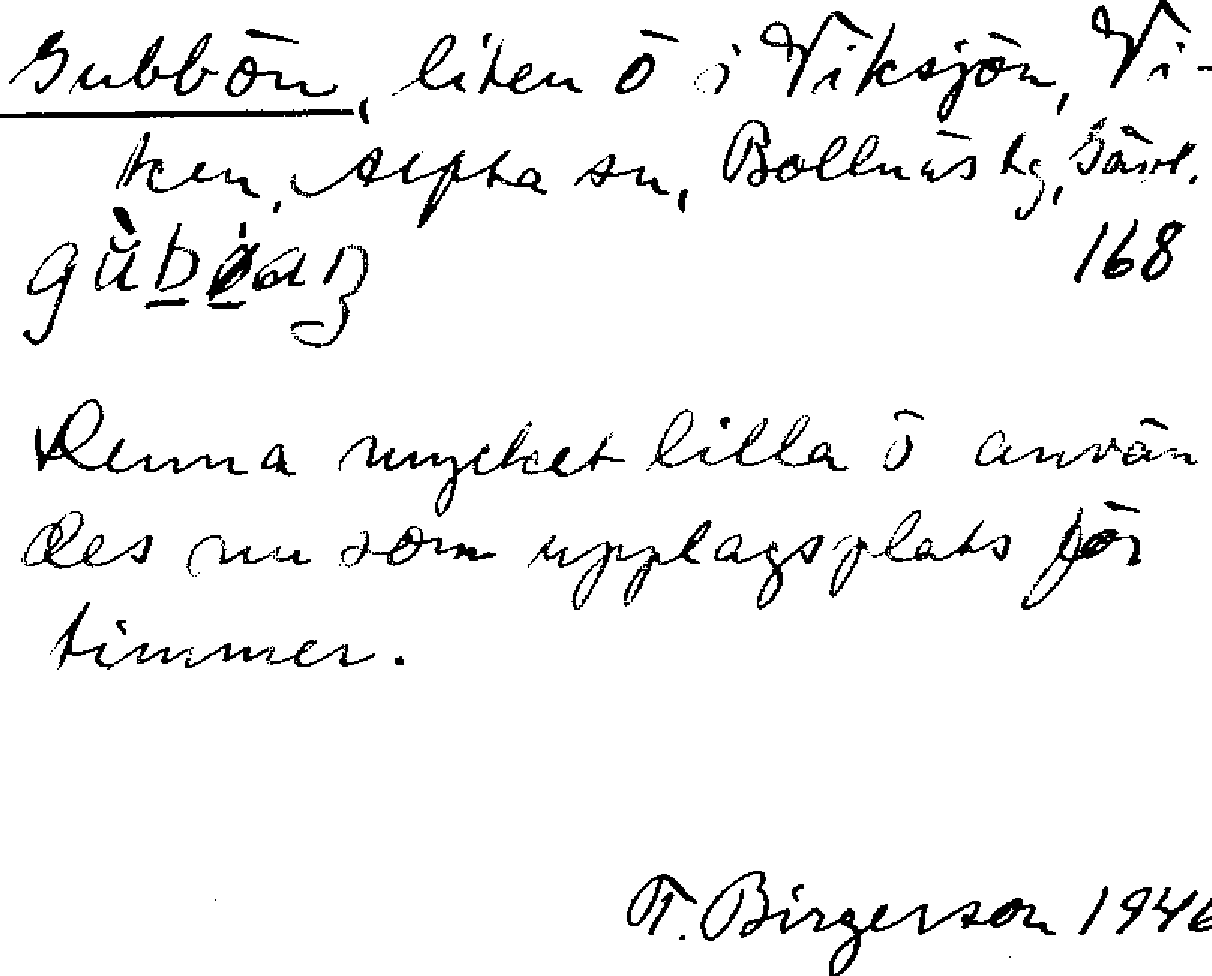 Gubbön, liten ö i Viksjön, Vi-
ken, Alfta sn, Bollnäs tg, Gävl.
168
Denna mycket lilla ö använ
des nu som upplagsplats för
timmer.
T. Birgerson 1946